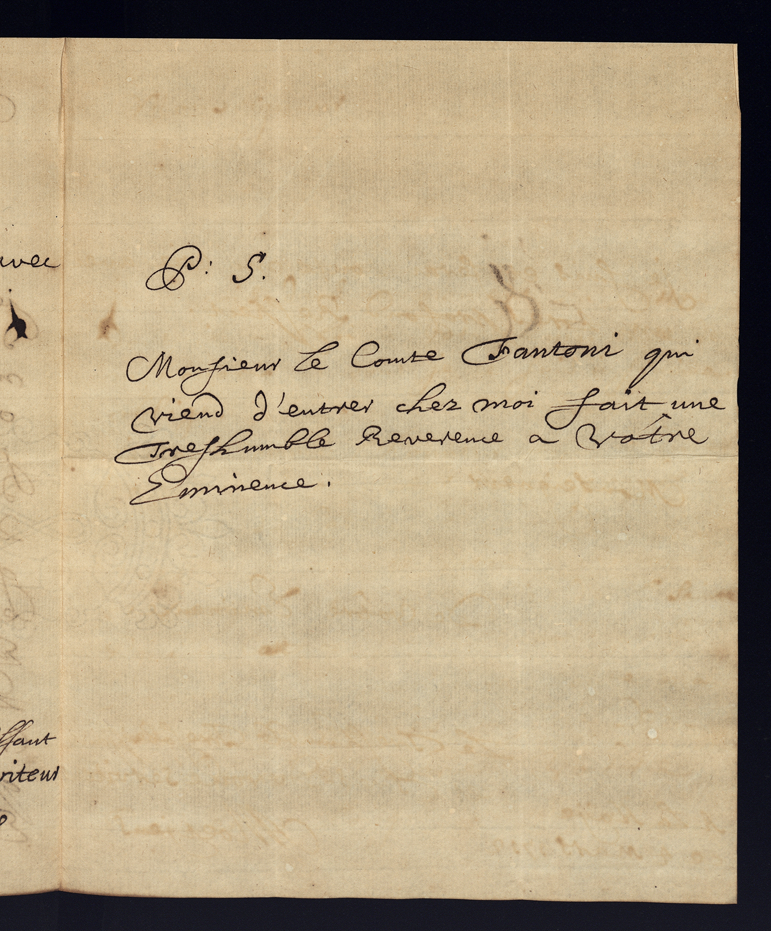 avec
P: S.
Monsieur le Comte Fantoni qui
viend d'entrer chez moi fait une
Treshumble Reverence a vótre
Eminence.